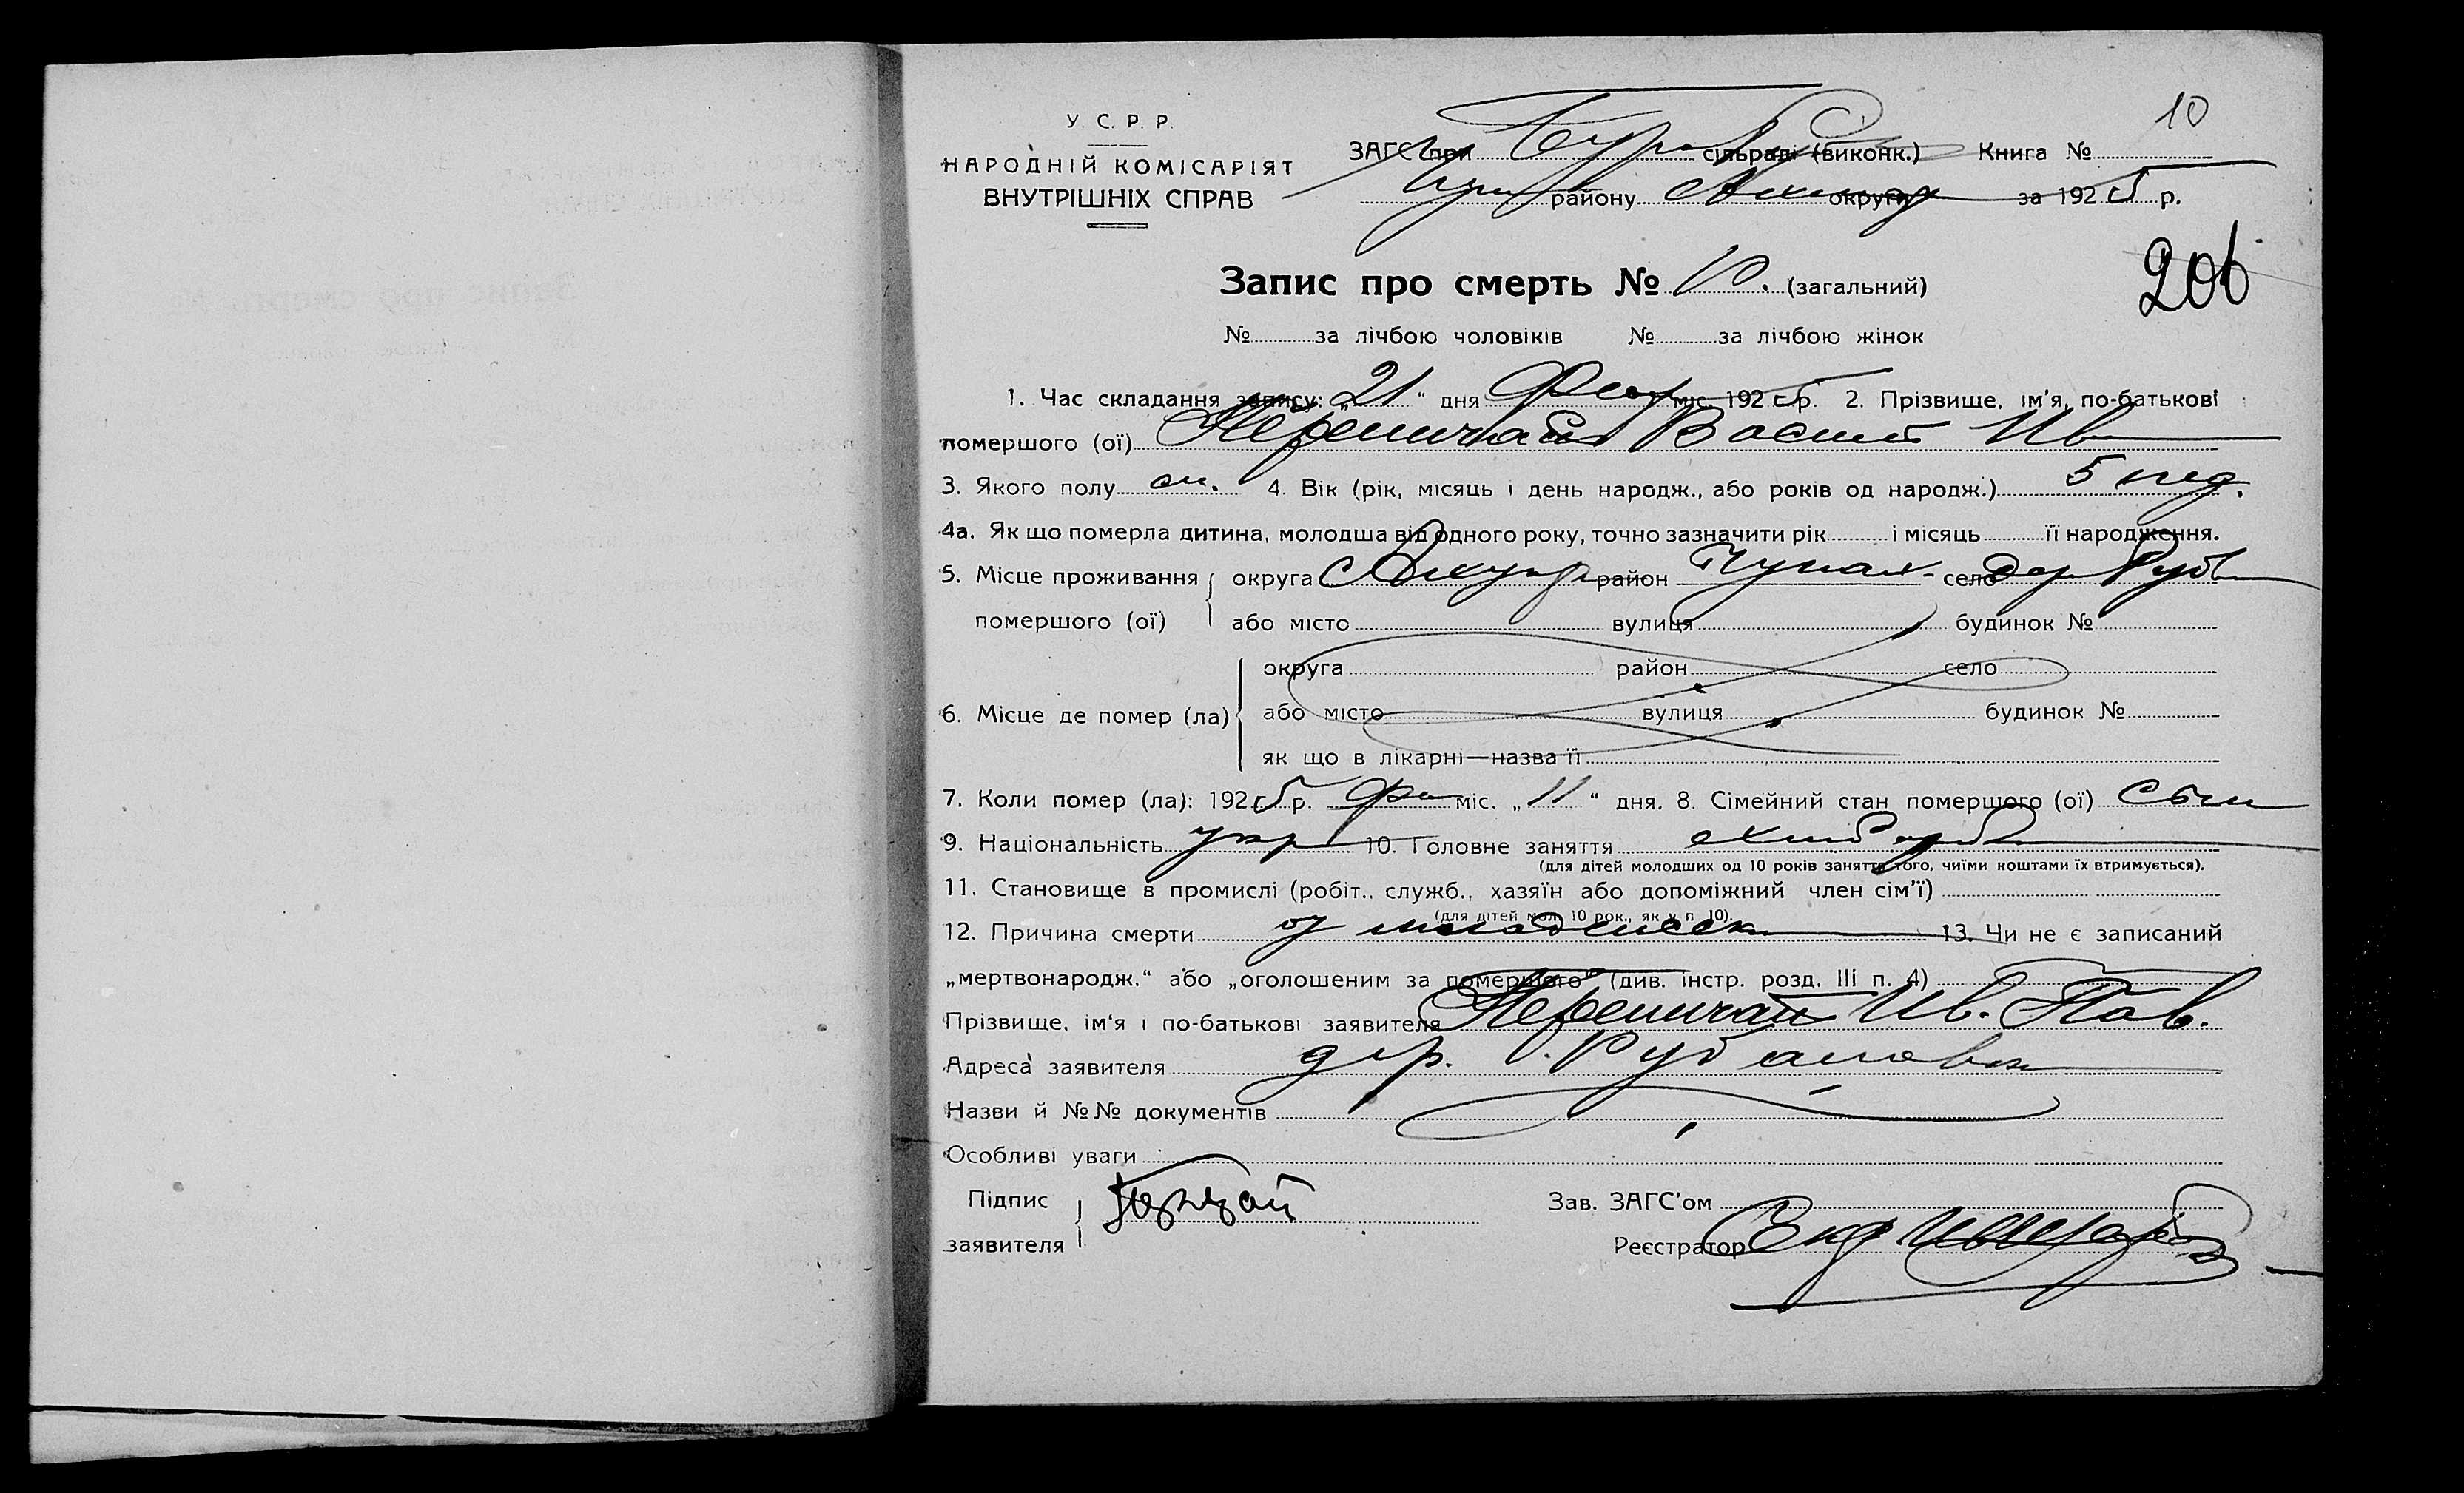 10
У. С. Р. Р.
НАРОДНІЙ КОМІСАРІЯТ
ВНУТРІШНІХ СПРАВ
ЗАГС при сільраді (виконк.) Книга №
району округи за 1925 р.
206
Запис про смерть № 10. (загальний)
№ за лічбою чоловіків № за лічбою жінок
1. Час складання запису: „21“ дня Фев міс. 1925 р. 2. Прізвище, ім'я, по-батькові
помершого (ої) Василий Ив
3. Якого полу м. 4. Вік (рік, місяць і день народж., або років од народж.) 5 нед.
4а. Як що померла дитина, молодша від одного року, точно зазначити рік і місяць її народження.
5. Місце проживання округа район село дер Руб
помершого (ої) або місто вулиця будинок №
округа район село
6. Місце де помер (ла) або місто вулиця будинок №
як що в лікарні—назва її
7. Коли помер (ла): 1925 р. Фев міс. „11“ дня. 8. Сімейний стан помершого (ої) сын
9. Національність укр 10. Головне заняття хлебороб
(для дітей молодших од 10 років заняття того, чиїми коштами їх втримується).
11. Становище в промислі (робіт., служб., хазяїн або допоміжний член сім'ї)
(для дітей мол. 10 рок., як у п. 10).
12. Причина смерти от младенческ 13. Чи не є записаний
„мертвонародж.“ або „оголошеним за помершого“ (див. інстр. розд. III п. 4)
Прізвище, ім'я і по-батькові заявителя Ив. Пав.
Адреса заявителя дер.
Назви й №№ документів
Особливі уваги
Підпис
заявителя
Зав. ЗАГС'ом
Реєстратор